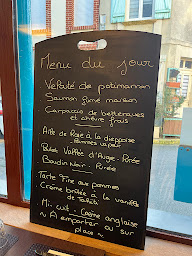 Menu du jour
Velouté de potimarron
Saumon fumé maison
Carpaccio de betteraves
et chèvre frais
Aile de Raie à la dieppoise
Pommes vapeur
Poulet Vallée d'Auge - Purée
Boudin Noir - Purée
Tarte Fine aux pommes
Crème brûlée à la vanille
de Tahiti
Mi-cuit - Crème anglaise
~ A emporter ou sur
place ~